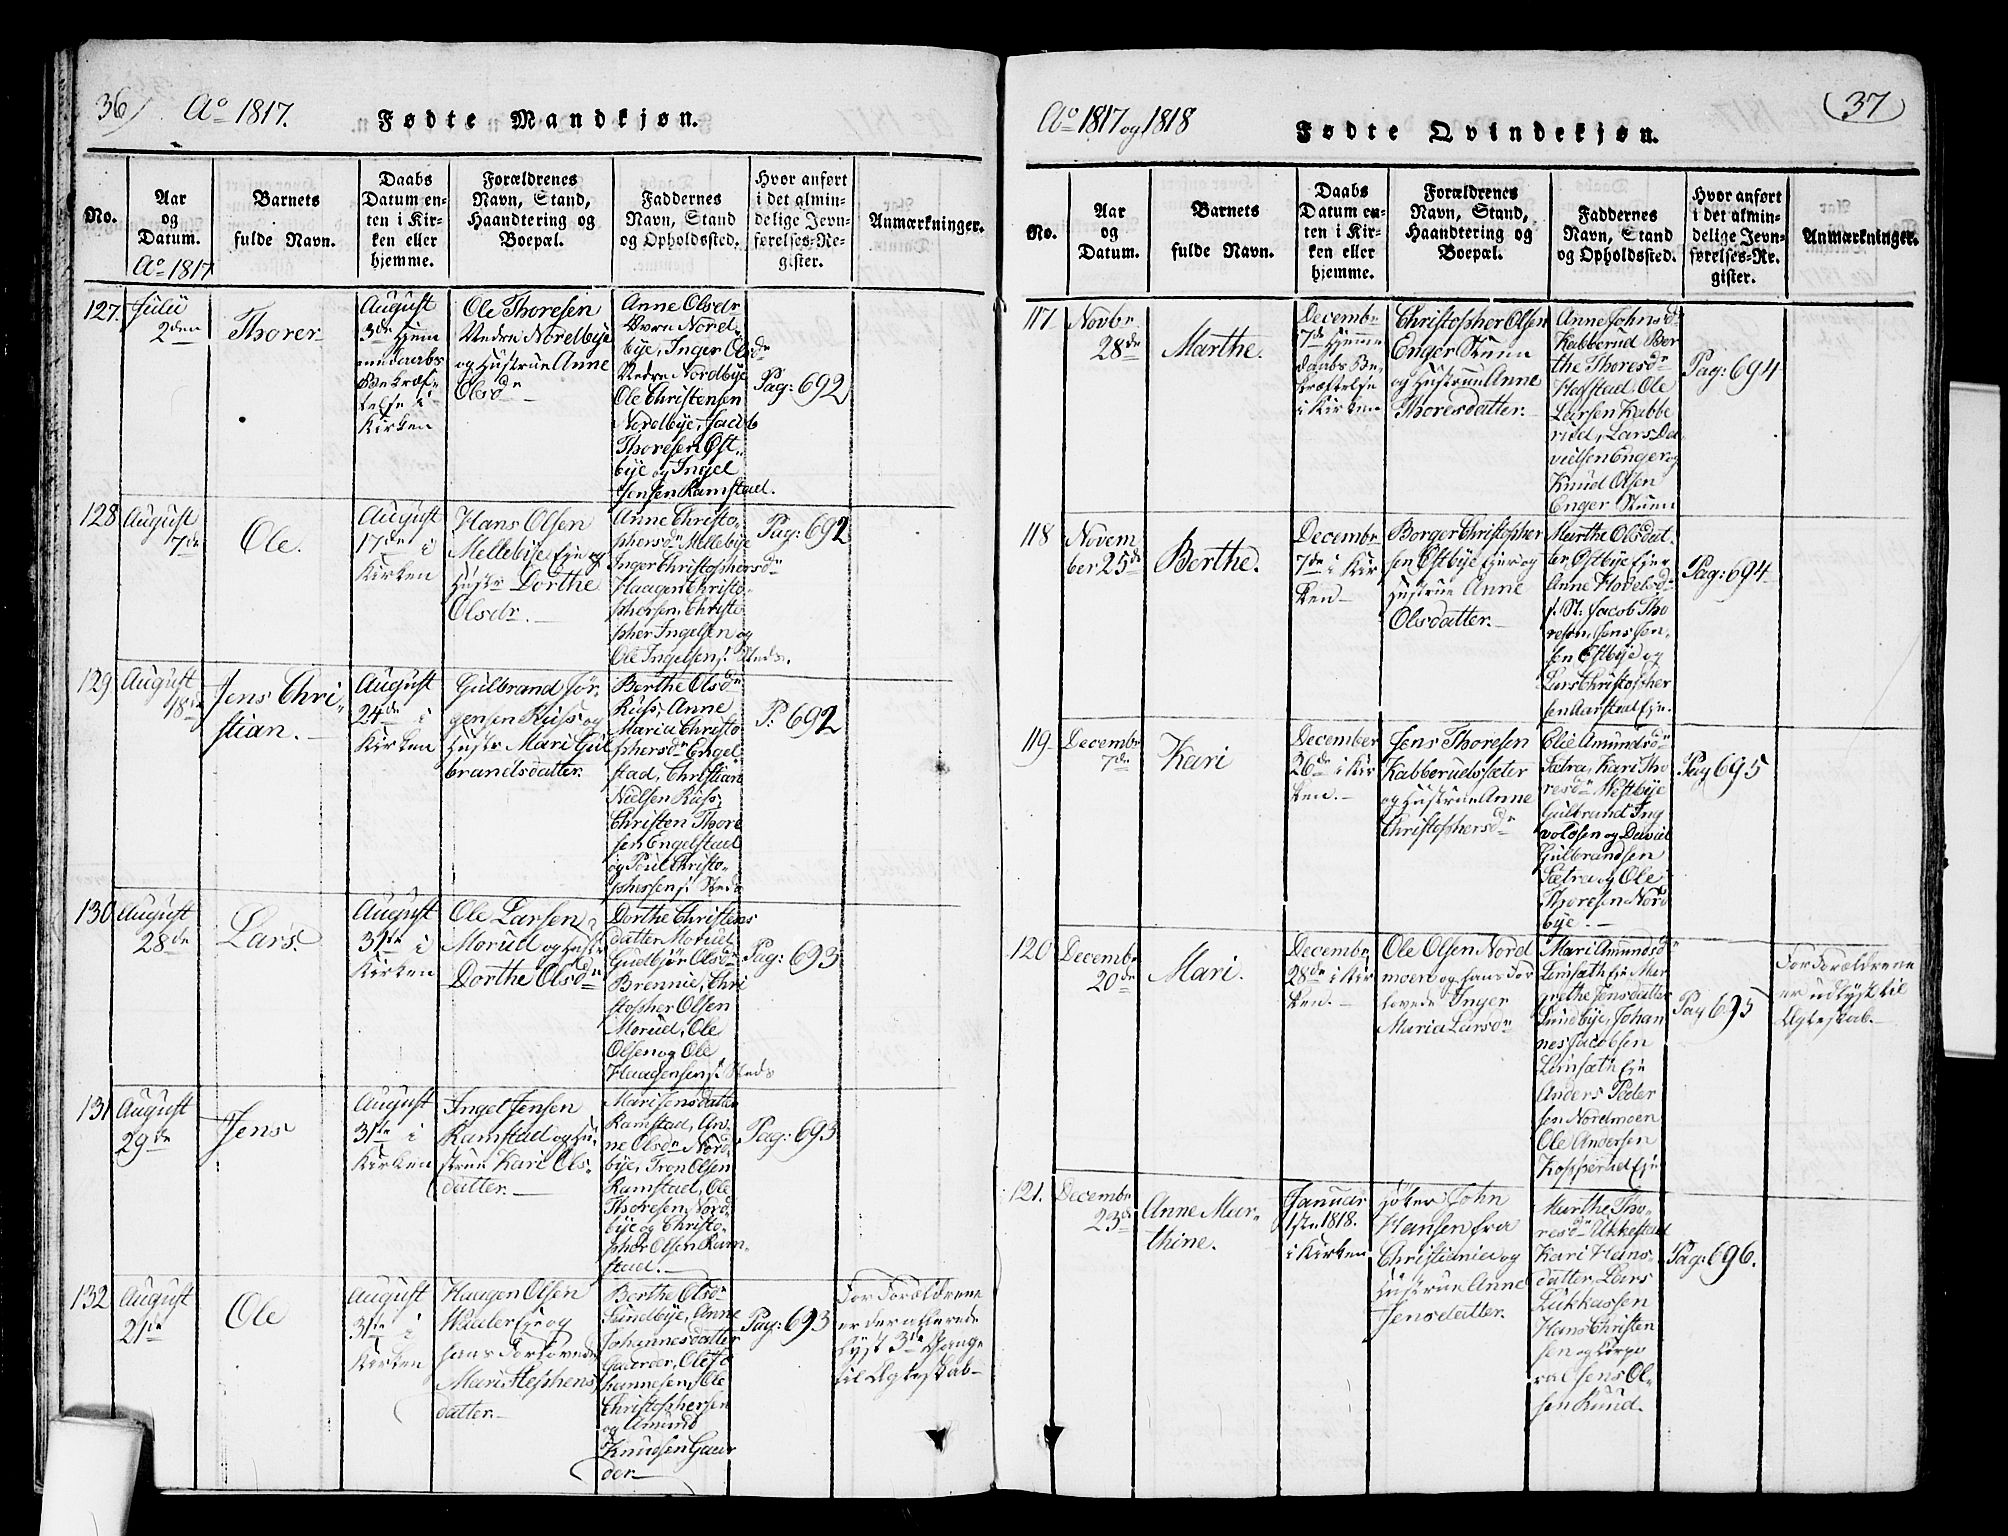 36) Ao 1817. Fødte Mandkjøn.
No.
Aar
og
Datum.
Barnets
fulde Navn.
Daabs
Datum en-
ten i Kir-
ken eller
hjemme.
Forældrenes
Navn, Stand,
Haandtering og
Boepæl.
Faddernes
Navn, Stand
og Opholdssted.
Hvor anført
i det almin-
delige Jevn-
førelses-Re-
gister.
Anmærkninger.
Ao 1817
127.
Julii
2den
Thorer
August
3de Hjem
medaabs
Bekræf-
telse i
Kirken
Ole Thoresen
Nedre Nordbye
og Hustrue Anne
Olsdr
Anne Olsdr
Øvre Nord-
bye, Inger Olsdr
Nedre Nordbye
Ole Christensen
Nordbye, Jacob
Thoresen Øst-
bye og Ingel
Jensen Ramstad.
Pag: 692
128
August
7de
Ole.
August
17de i
Kirken
Hans Olsen
Mellebye Eje og
Hustr Dorthe
Olsdr.
Anne Christo-
phersdr Mellebye
Inger Christophersdr
Haagen Christo-
phersen, Christo
pher Ingelsen og
Ole Ingelsen s. Steds.
Pag: 692
129
August
18de
Jens Chri-
stian.
August
24de i
Kirken
Gulbrand Jør-
gensen Russ og
Hustr Mari Gul
brandsdatter.
Berthe Olsdr
Russ, Anne
Maria Christo
phersdr Engel
stad, Christian
Nielsen Russ,
Christen Thore
sen Engelstad
og Poul Christo-
phersen s. Steds
P: 692
130
August
28de
Lars.
August
31te i
Kirken
Ole Larsen
Morud og Hustr
Dorthe Olsdr
Dorthe Christens
datter Morud
Gudbjør Olsdr
Brennie, Chri
stopher Olsen
Morud, Ole
Olsen og Ole
Haagensen s. Steds
Pag: 693
131
August
29de
Jens
August
31te i
Kirken
Ingel Jensen
Ramstad og Hu-
strue Kari Ols-
datter.
Mari Jensdatter
Ramstad, An-
ne Olsdr Nord-
bye, Tron Olsen
Ramstad, Ole
Thoresen Nord-
bye og Christo-
pher Olsen Ram-
stad.
Pag: 693
132
August
21de
Ole
August
31te i
Kirken
Haagen Olsen
Eje og
hans Forlovede
Mari Stephens
datter.
Berthe Olsdr
Sundbye, Anne
Johannesdatter
Gaarder, Ole Jo
hannesen, Ole
Christophersen
og Amund
Knudsen Gaar
der
Pag: 693
For Forældrene
er der allerede
lyst 3de Gange
til Ægteskab-
Ao 1817 og 1818 Fødte Qvindekjøn. (37)
No.
Aar
og
Datum.
Barnets
fulde Navn.
Daabs
Datum en-
ten i Kir-
ken eller
hjemme.
Forældrenes
Navn, Stand,
Haandtering og
Boepæl.
Faddernes
Navn, Stand
og Opholdssted.
Hvor anført
i det almin-
delige Jevn-
førelses-Re-
gister.
Anmærkninger.
117
Novbr
28de
Marthe.
Decembr
7de Hjemme
daabs Be-
kræftelse
i Kirken
Christopher Olsen
Enger Stuen
og Hustrue Anne
Thoresdatter.
Anne Johnsdr
Kabberud Ber
the Thoresdr
Hofstad Ole
Larsen Kabbe
rud, Lars Da
vidsen Enger og
Knud Olsen
Enger Stuen
Pag: 694
118
Novem
ber 25de
Berthe.
Decembr
7de i Kir
ken
Borger Christopher
sen Østbye Ejer og
Hustrue Anne
Olsdatter.
Marthe Olsdat
ter Østbye Ejer
Anne Hovelsdr
s. St. Jacob Tho
resen, Jens Jen-
sen Østbye og
Lars Christopher
sen Aarstad Eje.
Pag: 694
119
Decembr
7de
Kari
December
26de i Kir
ken.
Jens Thoresen
Kabberudsæter
og Hustrue Anne
Christophersdr
Olie Amundsdr
Sætra, Kari Tho
resdr Westbye
Gulbrand Ing
voldsen og David
Gulbrandsen
Sætra og Ole
Thoresen Nord
bye.
Pag 695
120
Decembr
20de
Mari.
Decembr
28de i Kir
ken.
Ole Olsen Nord
moen og hans For
lovede Inger
Maria Larsdr
Mari Amundsdr
Lemsæth Eje Mar
grethe Jensdatter
Sundbye, Johan
nes Jacobsen
Lemsæth Eje
Anders Peder
sen Nordmoen
Ole Andersen
Kopperud Eje
Pag 695
For Forældrene
er udlyst til
Ægteskab.
121.
Decembr
23de
Anne Mar-
thine.
Januar
1ste 1818.
i Kirken
Høker John
Hansen fra
Christiania og
Hustrue Anne
Jensdatter.
Marthe Tho
resdr Ukkestad
Kari Hans-
datter, Lars
Lukkassen
Hans Christen
sen og Corpo
ral Jens Ol-
sen Ruud.
Pag: 696.